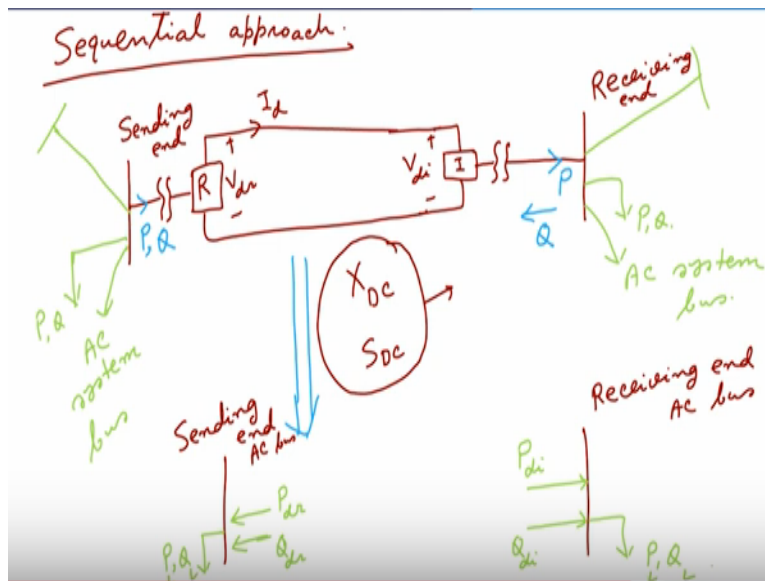 Sequential approach.
Sending
end
I_d
Receiving
end
R
+
V_dr
-
+
V_di
-
I
P, Q
P
Q
P, Q.
AC system
bus.
P, Q
AC
system
bus
X_DC
S_DC
Sending
end
AC bus
P_dr
Q_dr
P_L Q_L
Receiving end
AC bus
P_di
Q_di
P_L Q_L